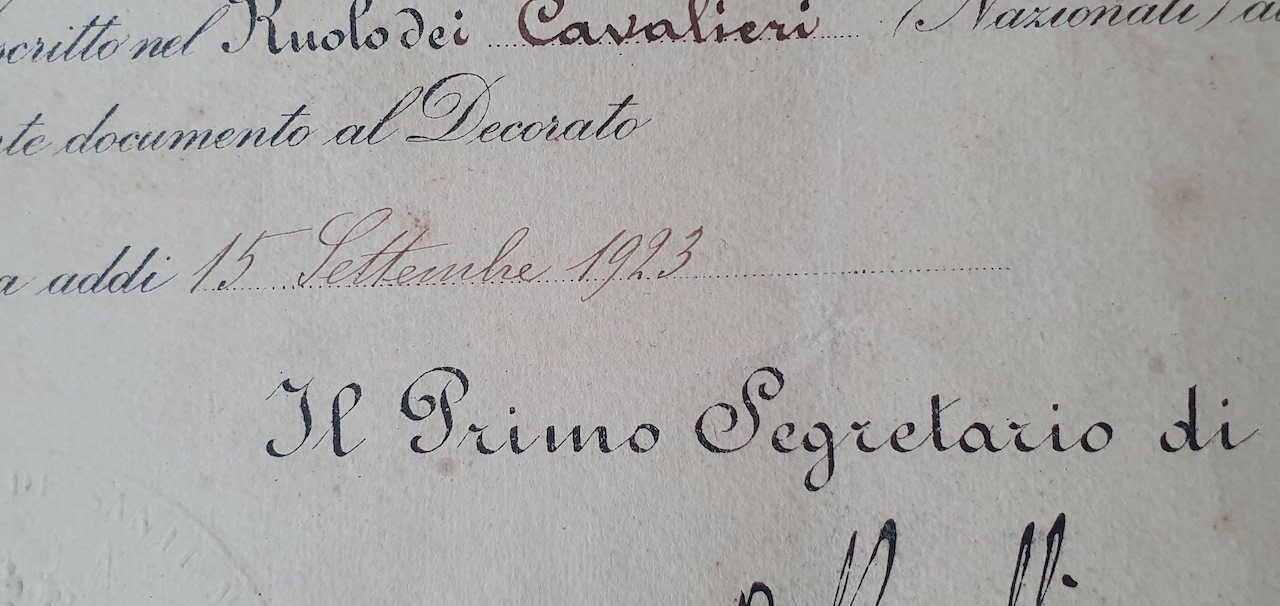 scritto nel Ruolo dei Cavalieri (Nazionali)
documento al Decorato
addi 15 Settembre 1923
Il Primo Segretario di